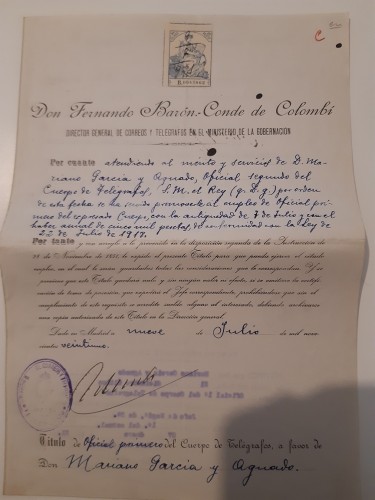 Don Fernando Barón.-Conde de Colombí
DIRECTOR GENERAL DE CORREOS Y TELÉGRAFOS EN EL MINISTERIO DE LA GOBERNACIÓN
Por cuanto atendiendo al mérito y servicios de D. Ma-
riano García y Aguado, Oficial segundo del
Cuerpo de Telégrafos, S. M. el Rey (q. D. g.) por orden
de esta fecha se ha servido promoverle al empleo de Oficial pri-
mero del expresado Cuerpo, con la antigüedad de 7 de Julio y con el
haber anual de cuatro mil pesetas, de conformidad con la Ley de
Por tanto y en
28 de Noviembre de 1851 le expido el presente Título para que pueda ejercer el citado
empleo, en el cual le serán guardadas todas las consideraciones que le correspondan. Y se
previene que este Título quedará nulo y sin ningún valor ni efecto, si se omitiese la certifi-
cación de toma de posesión que expedirá el Jefe correspondiente, prohibiéndose que sin el
cumplimiento de este requisito se acredite sueldo alguno al interesado, debiendo archivarse
una copia autorizada de este Título en la Dirección general.
Dado en Madrid a nueve de Julio de mil nove-
cientos veintiuno.
Título de Oficial primero del Cuerpo de Telégrafos, a favor de
Don Mariano García y Aguado.